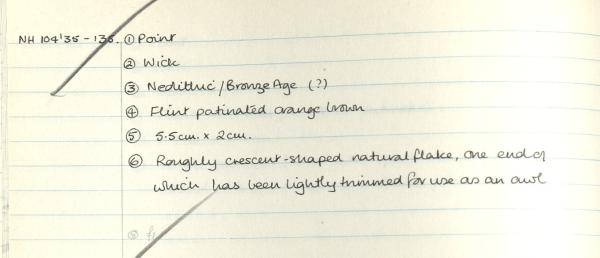 NH 104'35 - 136. ① Point
② Wick
③ Neolithic / Bronze Age (?)
④ Flint patinated orange brown
⑤ 5.5cm. x 2cm.
⑥ Roughly crescent-shaped natural flake, one end of
which has been lightly trimmed for use as an awl
⑧